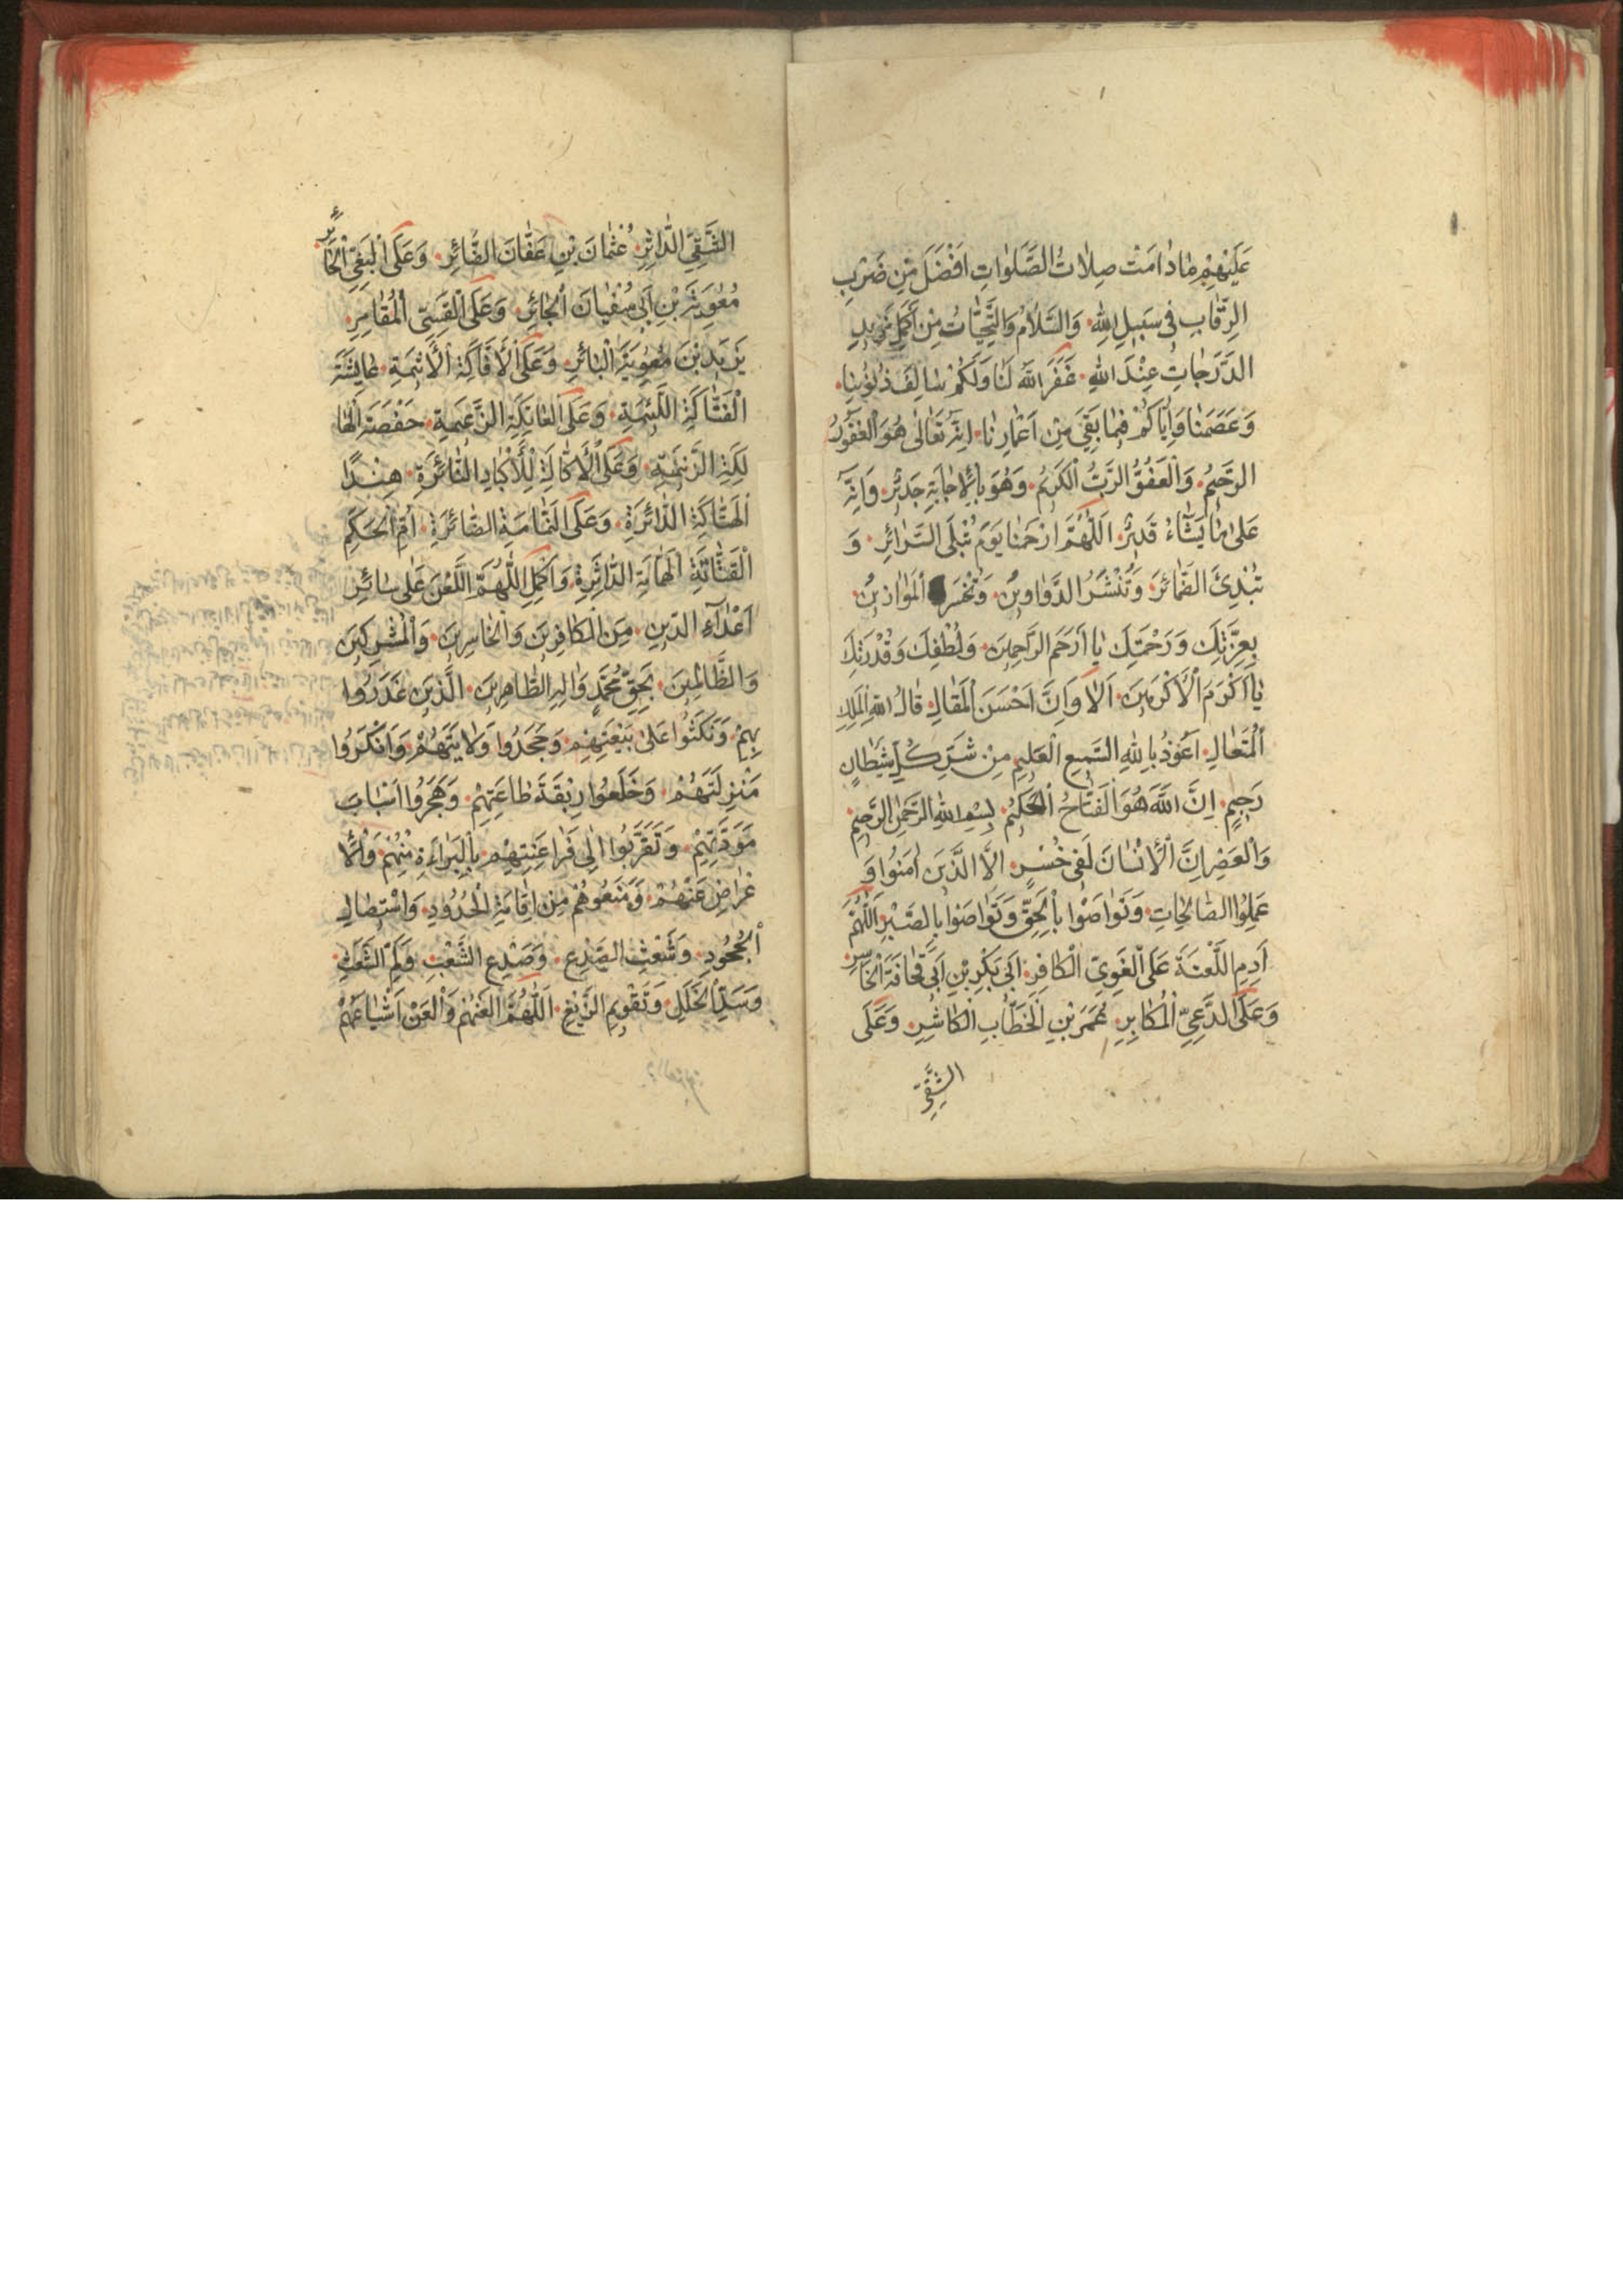 عَلَيْهِمْ مَادَامَتْ صِلَاتُ الصَّلَوَاتِ اَفْضَلَ مِنْ ضَرْبِ
الرِّقَابِ فِى سَبِيلِ اللهِ وَالسَّلَامُ وَالتَّحِيَّاتُ مِنْ اَكْمَلِ
الدَّرَجَاتِ عِنْدَ اللهِ غَفَرَ اللهُ لَنَا وَلَكُمْ سَالِفَ ذُنُوبِنَا
وَعَصَمَنَا وَاِيَّاكُمْ فِيمَا بَقِىَ مِنْ اَعْمَارِنَا اِنَّهُ تَعَالٰى هُوَ الْغَفُورُ
الرَّحِيمُ وَالْعَفُوُّ الرَّبُّ الْكَرِيمُ وَهُوَ بِالْاِجَابَةِ جَدِيرٌ وَاِنَّهُ
عَلٰى مَا يَشَاءُ قَدِيرٌ اَللّٰهُمَّ ارْحَمْنَا يَوْمَ تُبْلَى السَّرَائِرِ وَ
تُبْدِئَ الضَّمَائِرَ وَتُنْشَرُ الدَّوَاوِينُ الْمَوَازِينُ
بِعِزَّتِكَ وَرَحْمَتِكَ يَا اَرْحَمَ الرَّاحِمِينَ وَلُطْفِكَ وَقُدْرَتِكَ
يَا اَكْرَمَ الْاَكْرَمِينَ اَلَا وَاِنَّ اَحْسَنَ الْمَقَالِ قَالُ اللهِ الْمَلِكِ
الْمُتَعَالِ اَعُوذُ بِاللهِ السَّمِيعِ الْعَلِيمِ مِنْ شَرِّ كُلِّ شَيْطَانٍ
رَجِيمٍ اِنَّ اللهَ هُوَ الْفَتَّاحُ الْحَكِيمُ بِسْمِ اللهِ الرَّحْمٰنِ الرَّحِيمِ
وَالْعَصْرِ اِنَّ الْاِنْسَانَ لَفِى خُسْرٍ اِلَّا الَّذِينَ اٰمَنُوا وَ
عَمِلُوا الصَّالِحَاتِ وَتَوَاصَوْا بِالْحَقِّ وَتَوَاصَوْا بِالصَّبْرِ اَللّٰهُمَّ
اَدِمِ اللَّعْنَةَ عَلَى الْغَوِىِّ الْكَافِرِ اَبِى بَكْرِ بْنِ اَبِى قُحَافَةَ الْخَاسِرِ
وَعَلَى الدَّعِىِّ الْمُكَابِرِ عُمَرَ بْنِ الْخَطَّابِ الْكَاشِرِ وَعَلَى
الشَّقِىِّ
الشَّقِىِّ الدَّاثِرِ عُثْمَانَ بْنِ عَفَّانَ الضَّائِرِ وَعَلَى الْبَغِىِّ الْحَائِرِ
مُعٰوِيَةَ بْنِ اَبِى سُفْيَانَ الْجَائِرِ وَعَلَى الْقَسِىِّ الْمُقَامِرِ
يَزِيدَ بْنَ مُعٰوِيَةَ الْبَائِرِ وَعَلَى الْاَفَّاكَةِ الْاَثِيمَةِ عَايِشَةَ
الْفَتَّاكَةِ اللَّئِيمَةِ وَعَلَى الزَّعِيمَةِ حَفْصَةَ الْهَا
لِكَةِ الزَّنِيمَةِ وَعَلَى الْاَكَّالَةِ لِلْاَكْبَادِ هِنْدًا
الْهَتَّاكَةِ الدَّائِرَةِ وَعَلَى النَّمَّامَةِ الضَّائِرَةِ اُمِّ الْحَكَمِ
الْقَتَّاتَةِ وَاَكْمِلِ اللّٰهُمَّ اللَّعْنَ عَلٰى سَائِرِ
اَعْدَآءِ الدِّينِ مِنَ الْكَافِرِينَ وَالْخَاسِرِينَ وَالْمُشْرِكِينَ
وَالظَّالِمِينَ بِحَقِّ مُحَمَّدٍ وَاٰلِهِ الطَّاهِرِينَ الَّذِينَ غَدَرُوا
بِهِمْ وَنَكَثُوا عَلٰى بَيْعَتِهِمْ وَجَحَدُوا وَلَايَتَهُمْ وَاَنْكَرُوا
مَنْزِلَتَهُمْ وَخَلَعُوا رِبْقَةَ طَاعَتِهِمْ وَهَجَرُوا اَسْبَابَ
مَوَدَّتِهِمْ وَتَقَرَّبُوا اِلٰى فَرَاعِنَتِهِمْ بِالْبَرَاءَةِ مِنْهُمْ وَالْاِ
عْرَاضِ عَنْهُمْ وَمَنَعُوهُمْ مِنْ اِقَامَةِ الْحُدُودِ وَاسْتِيصَالِ
الْجُحُودِ وَشَعْبِ الصَّدْعِ وَصَدْعِ الشَّعْبِ وَلَمِّ الشَّعَثِ
وَسَدِّ الْخَلَلِ وَتَقْوِيمِ الزَّيْغِ اَللّٰهُمَّ الْعَنْهُمْ وَالْعَنْ اَشْيَاعَهُمْ